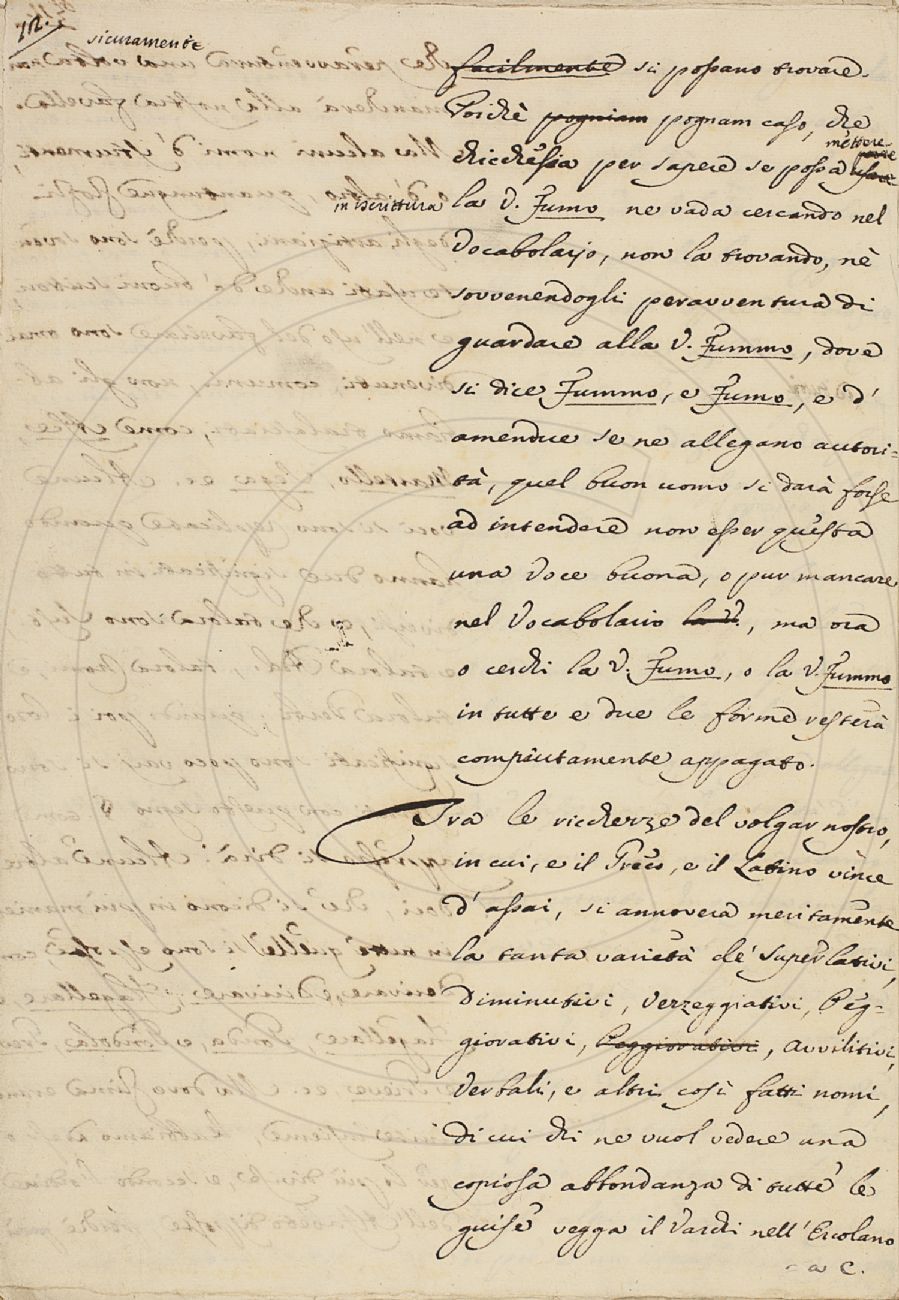 12.
sicuramente
facilmente si possano trovare.
Poichè pogniam pognam caso, che
mettere
chichessia per sapere se possa usare
in iscrittura la V. Fumo ne vada cercando nel
Vocabolario, non la trovando, nè
sovvenendogli peravventura di
guardare alla V. Fummo, dove
si dice Fummo, e Fumo, e d'
amendue se ne allegano autori=
tà, quel buon uomo si darà forse
ad intendere non esser questa
una voce buona, o pur mancare
nel Vocabolario la V., ma ora
o cerchi la V. Fumo, o la V. Fummo
in tutte e due le forme resterà
compiutamente appagato.
Tra le ricchezze del volgar nostro,
in cui, e il Greco, e il Latino vince
d'assai, si annovera meritamente
la tanta varietà de' Superlativi,
Diminutivi, Vezzeggiativi, Peg=
giorativi, Peggiorativi, Avvilitivi,
Verbali, e altri così fatti nomi,
di cui chi ne vuol vedere una
copiosa abbondanza di tutte le
guise vegga il Varchi nell'Ercolano
a C.